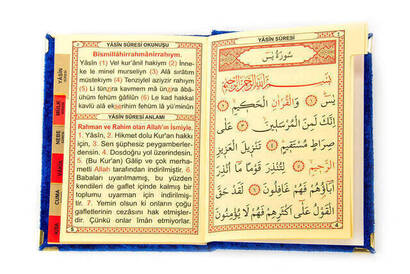 YÂSİN SÛRESİ OKUNUŞU
Bismillâhirrahmânirrahıym.
Yâsîn (1) Vel kurânil hakiym (2) İnne-
ke le minel murseliyn (3) Alâ sırâtım
müstekıym (4) Tenziylel aziyzir rahıym
(5) Li tünzira kavmem mâ ünzira âbâ-
ühüm fehüm ğâfilûn (6) Le kad hakkal
kavlü alâ ekserihim fehüm lâ yü'minûn
YÂSİN SÛRESİ ANLAMI
Rahman ve Rahim olan Allah'ın İsmiyle.
1. Yâsin, 2. Hikmet dolu Kur'an hakkı
için, 3. Sen şüphesiz peygamberler-
densin. 4. Dosdoğru yol üzerindesin.
5. (Bu Kur'an) Gâlip ve çok merha-
metli Allah tarafından indirilmiştir. 6.
Babaları uyarılmamış, bu yüzden
kendileri de gaflet içinde kalmış bir
toplumu uyarman için indirilmiş-
tir. 7. Yemin olsun ki onların çoğu
gafletlerinin cezâsını hak etmişler-
dir. Çünkü onlar îman etmiyorlar.
5
YÂSİN
MÜLK
NEBE
CUMA
YÂSİN SÛRESİ
سُورَةُ يٰسٓ
بِسْمِ اللّٰهِ الرَّحْمٰنِ الرَّحِيمِ
يٰسٓ ﴿١﴾ وَالْقُرْاٰنِ الْحَكِيمِ ﴿٢﴾
اِنَّكَ لَمِنَ الْمُرْسَلِينَ ﴿٣﴾ عَلٰى
صِرَاطٍ مُسْتَقِيمٍ ﴿٤﴾ تَنْزِيلَ الْعَزِيزِ
الرَّحِيمِ ﴿٥﴾ لِتُنْذِرَ قَوْمًا مَٓا اُنْذِرَ
اٰبَٓاؤُ۬هُمْ فَهُمْ غَافِلُونَ ﴿٦﴾ لَقَدْ حَقَّ
الْقَوْلُ عَلٰٓى اَكْثَرِهِمْ فَهُمْ لَا يُؤْمِنُونَ
4